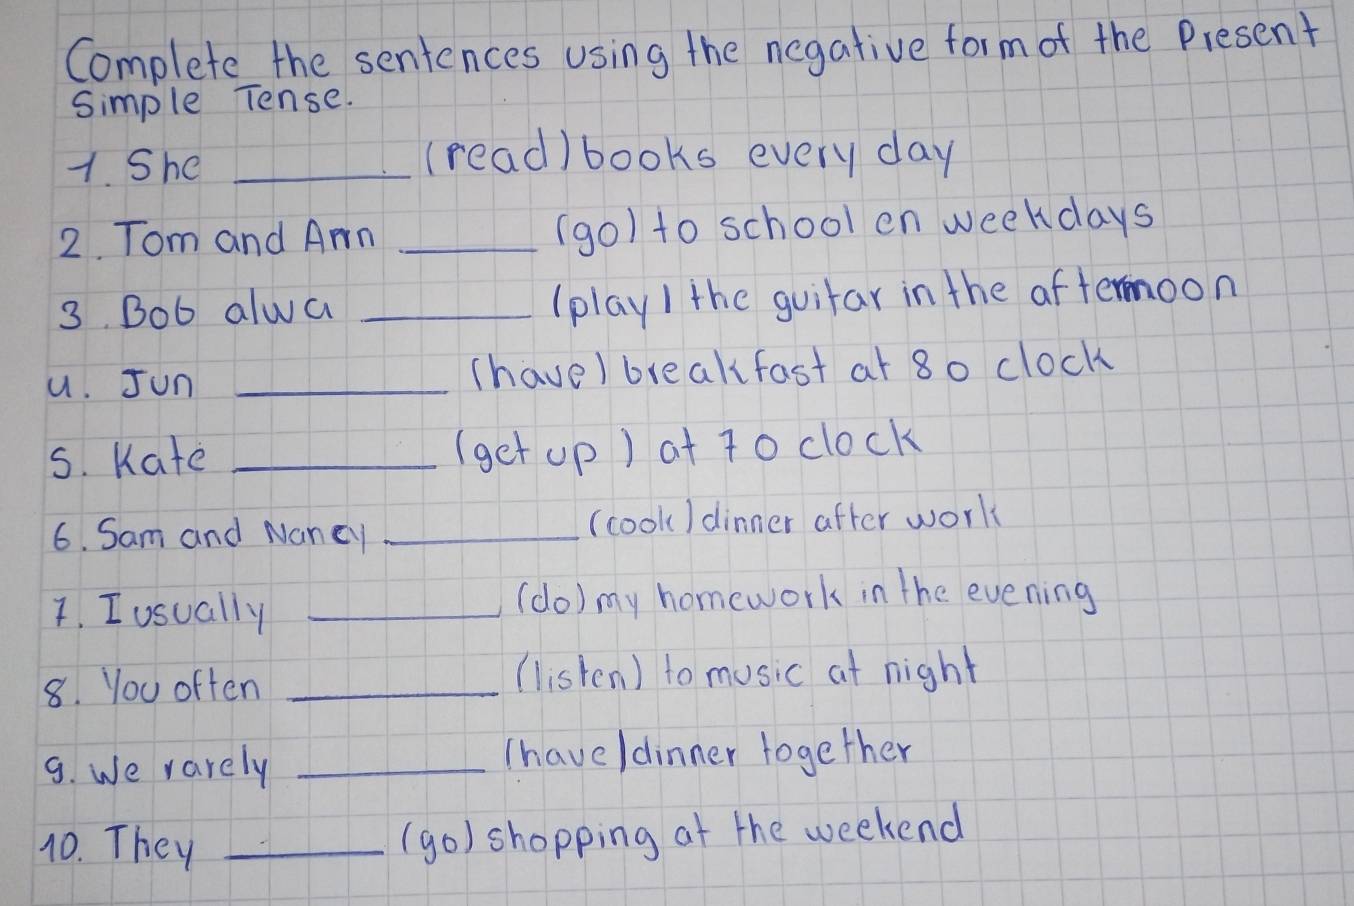 Complete the sentences using the negative form of the Present
Simple Tense.
1. She ______ (read) books every day
2. Tom and Ann ______ (go) to school en weekdays
3. Bob alwa ______ (play) the guitar in the afternoon
4. Jun ______ (have) breakfast at 8 o clock
5. Kate ______ (get up) at 7 o clock
6. Sam and Nancy ______ (cook) dinner after work
7. I usually ______ (do) my homework in the evening
8. You often ______ (listen) to music at night
9. We rarely ______ (have) dinner together
10. They ______ (go) shopping at the weekend